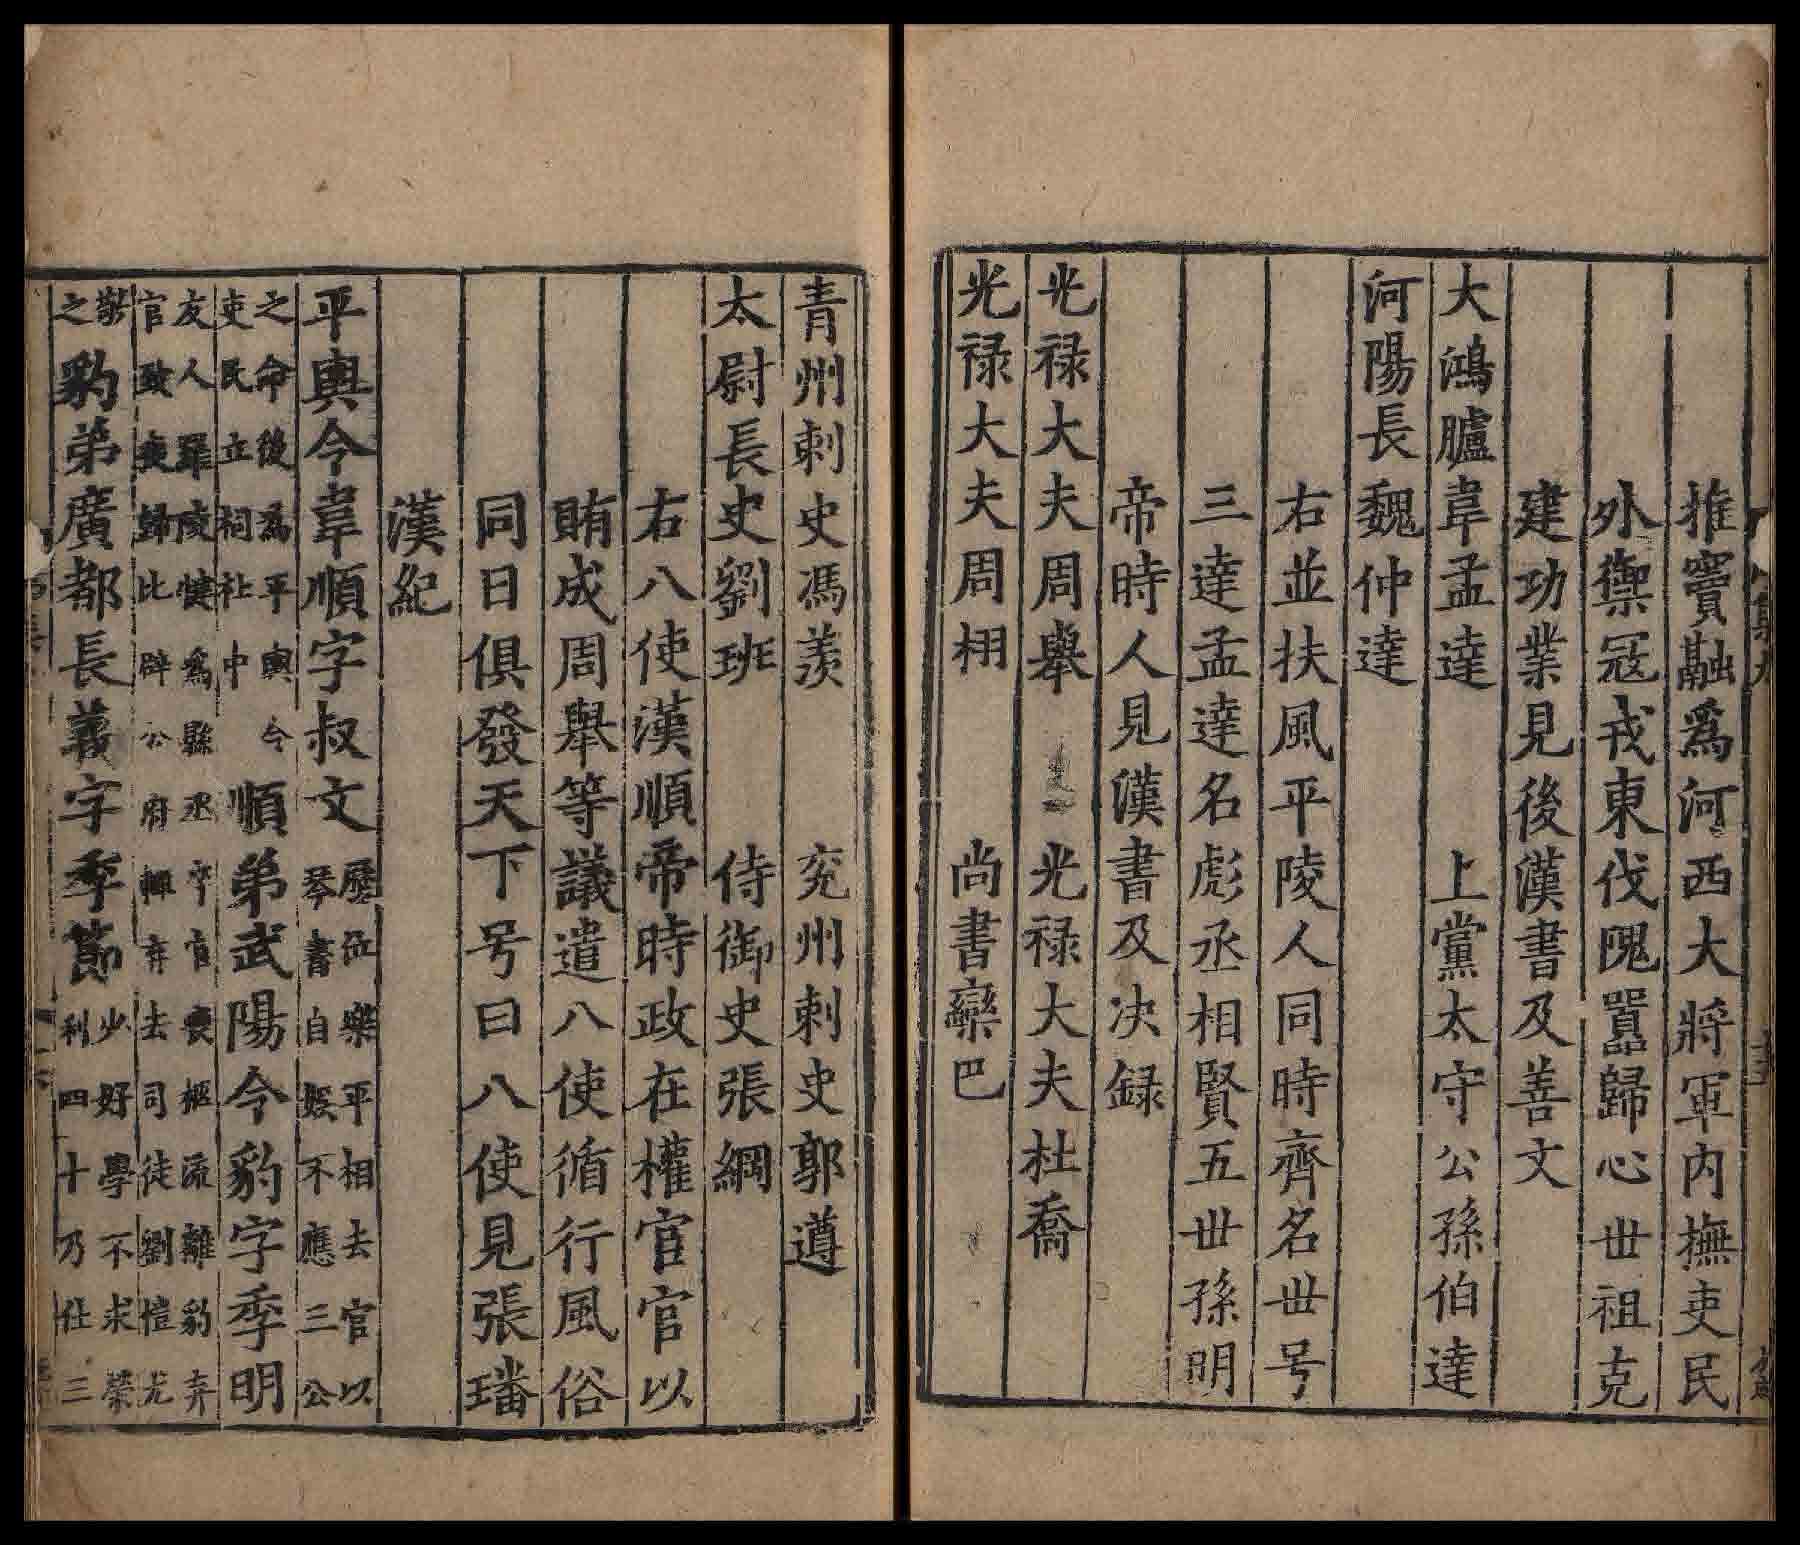 推竇融爲河西大將軍內撫吏民
外禦冦戎東伐隗囂歸心世祖克
建功業見後漢書及善文
大鴻臚韋孟達　上黨太守公孫伯達
河陽長魏仲達
右並扶風平陵人同時齊名世号
三達孟達名彪丞相賢五世孫明
帝時人見漢書及决録
光禄大夫周舉　光禄大夫杜喬
光禄大夫周栩　尚書欒巴
青州刺史馮羨　兖州刺史郭遵
太尉長史劉班　侍御史張綱
右八使漢順帝時政在權官官以
賄成周舉等議遣八使循行風俗
同日俱發天下号曰八使見張璠
漢紀
平輿令韋順字叔文歷位樂平相去官以
琴書自娱不應三公
之命後爲平輿令
吏民立祠社中　順弟武陽令豹字季明
友人羅陵犍爲縣丞卒官喪柩流離豹弃
官致喪歸比辟公府輒弃去司徒劉愷尤
敬
之豹弟廣都長義字季節少好學不求榮
利四十乃仕三